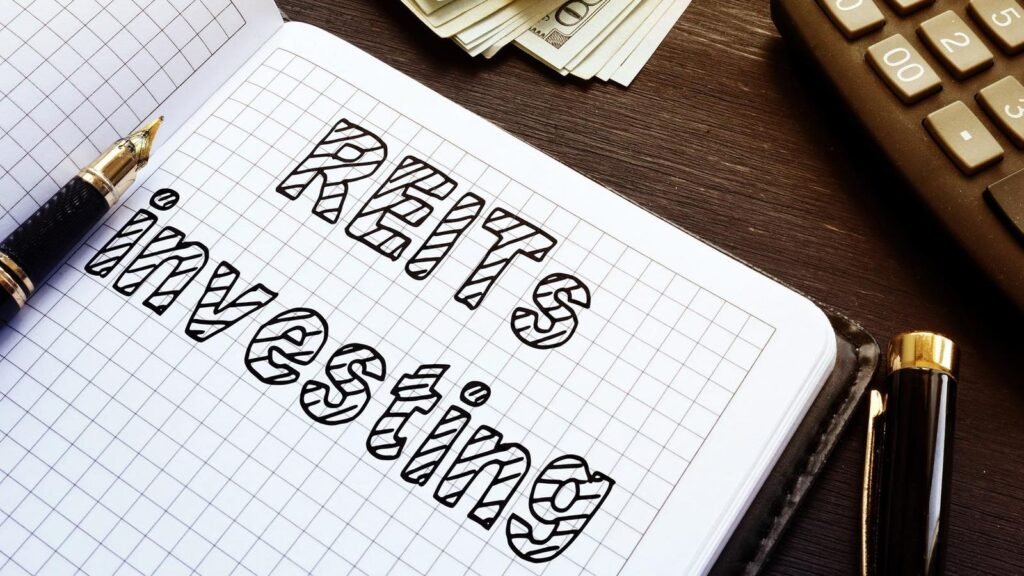 REITs
investing
00
2
5
3
0